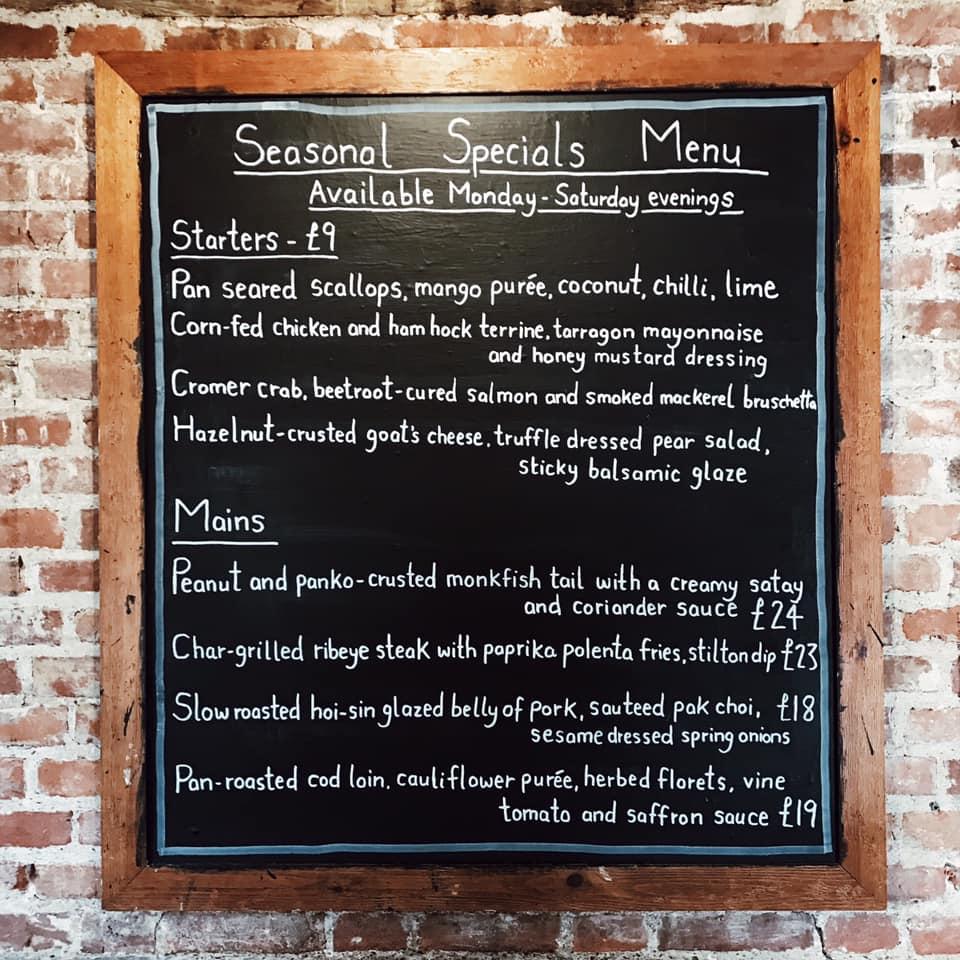 Seasonal Specials Menu
Available Monday - Saturday evenings
Starters - £9
Pan seared scallops, mango purée, coconut, chilli, lime
Corn-fed chicken and ham hock terrine, tarragon mayonnaise
and honey mustard dressing
Cromer crab, beetroot-cured salmon and smoked mackerel bruschetta
Hazelnut-crusted goat's cheese, truffle dressed pear salad,
sticky balsamic glaze
Mains
Peanut and panko-crusted monkfish tail with a creamy satay
and coriander sauce £24
Char-grilled ribeye steak with paprika polenta fries, stilton dip £23
Slow roasted hoi-sin glazed belly of pork, sauteed pak choi, £18
sesame dressed spring onions
Pan-roasted cod loin, cauliflower purée, herbed florets, vine
tomato and saffron sauce £19